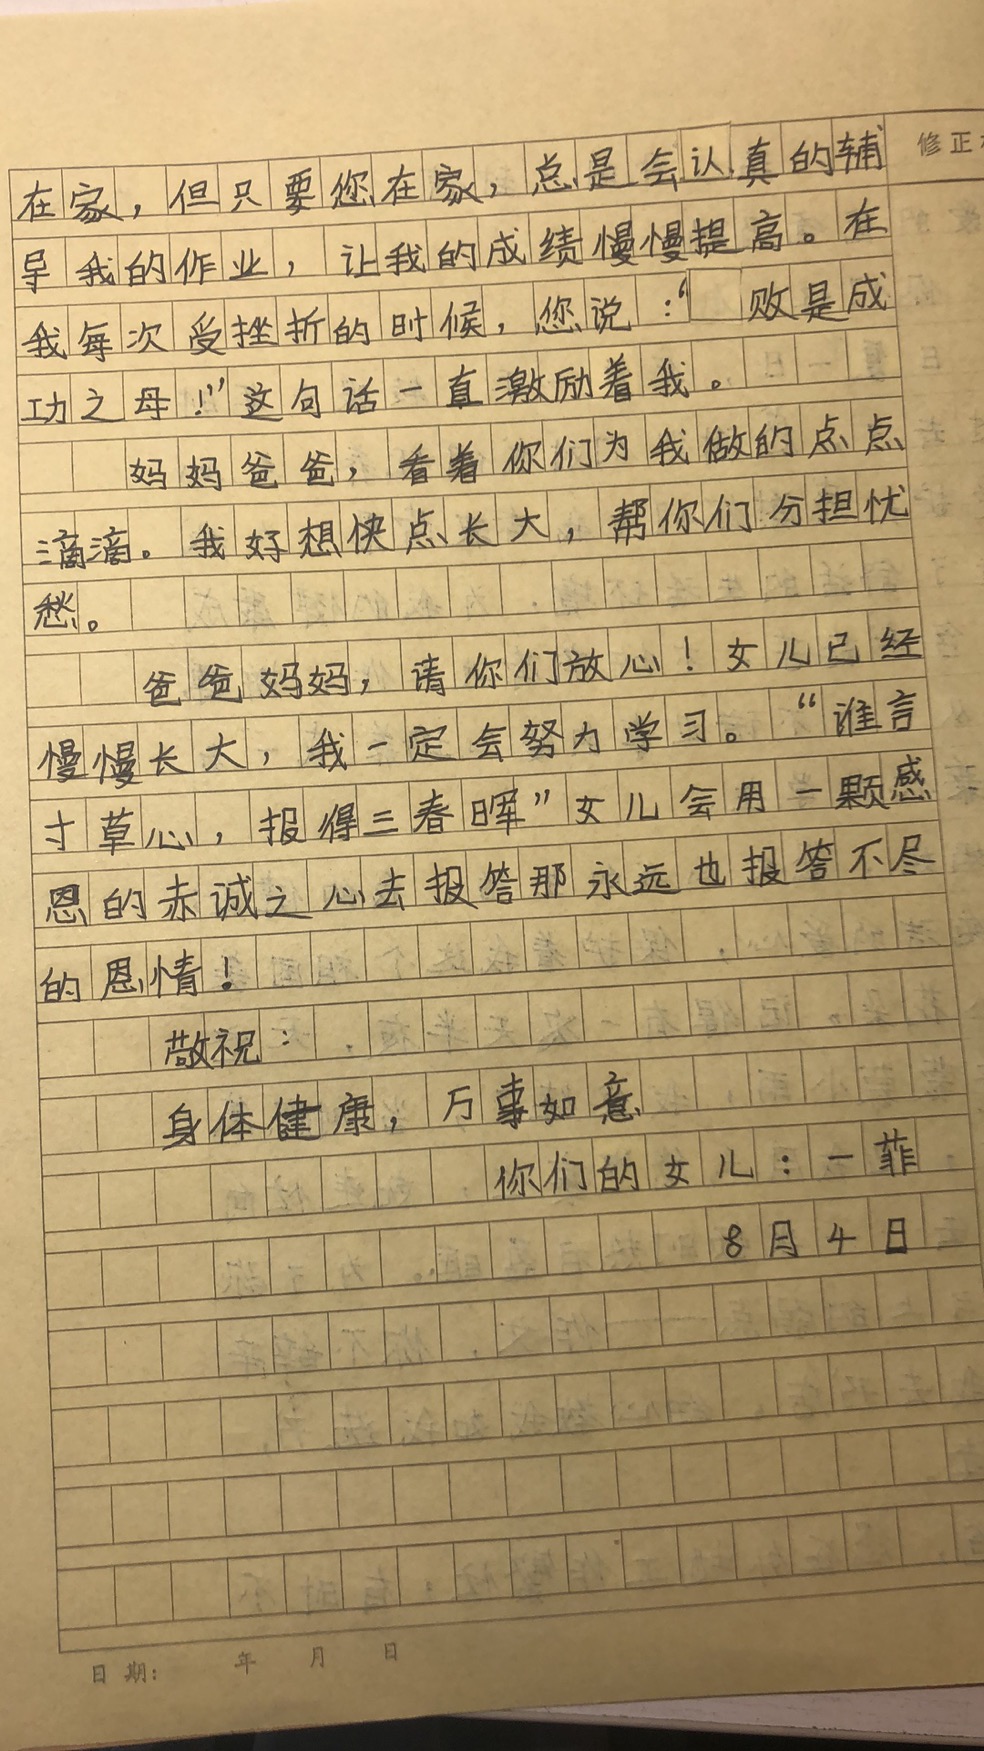 修正
在家，但只要您在家，总是会认真的辅
导我的作业，让我的成绩慢慢提高。在
我每次受挫折的时候，您说：“ 败是成
功之母！”这句话一直激励着我。
妈妈爸爸，看着你们为我做的点点
滴滴。我好想快点长大，帮你们分担忧
愁。
爸爸妈妈，请你们放心！女儿已经
慢慢长大，我一定会努力学习。“谁言
寸草心，报得三春晖”女儿会用一颗感
恩的赤诚之心去报答那永远也报答不尽
的恩情！
敬祝：
身体健康，万事如意
你们的女儿：一菲
8月4日
日期： 年 月 日